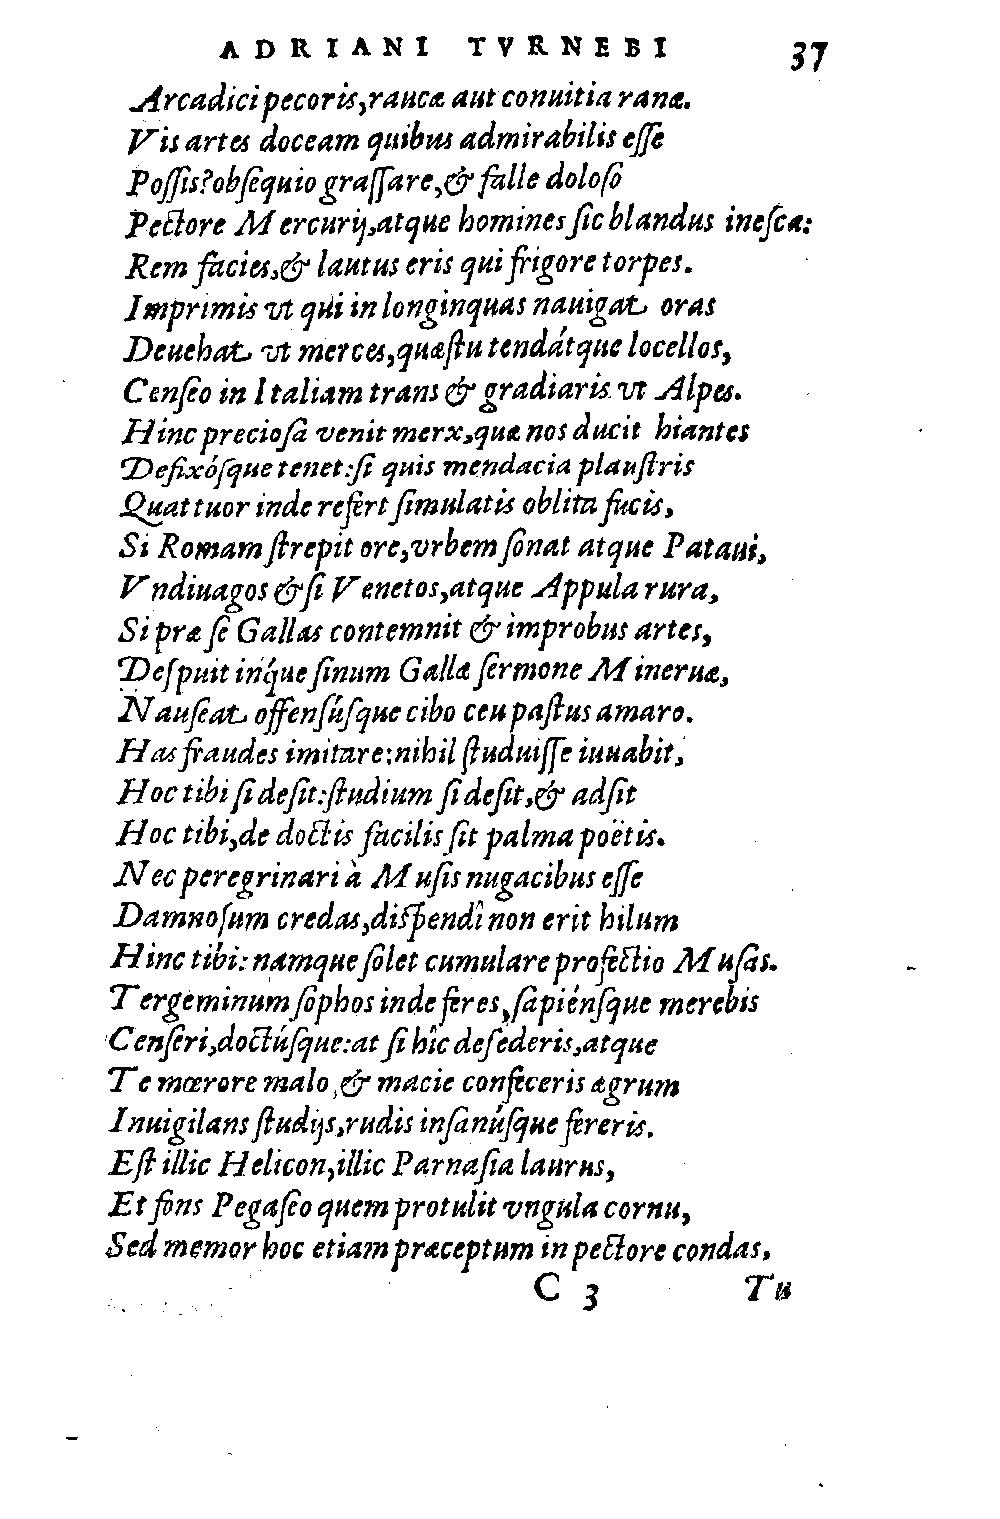 ADRIANI TVRNEBI 37
Arcadici pecoris, raucæ aut conuitia ranæ.
Vis artes doceam quibus admirabilis eſſe
Poſſis? obſequio graſſare, & falle doloſo
Pectore Mercurij, atque homines ſic blandus ineſca:
Rem facies, & lautus eris qui frigore torpes.
Imprimis vt qui in longinquas nauigat oras
Deuehat vt merces, quæſtu tendátque locellos,
Cenſeo in Italiam trans & gradiaris vt Alpes.
Hinc precioſa venit merx, quæ nos ducit hiantes
Defixóſque tenet: ſi quis mendacia plauſtris
Quattuor inde refert ſimulatis oblita fucis,
Si Romam ſtrepit ore, vrbem ſonat atque Pataui,
Vndiuagos & ſi Venetos, atque Appula rura,
Si præ ſe Gallas contemnit & improbus artes,
Deſpuit ínque ſinum Gallæ ſermone Mineruæ,
Nauſeat offenſúſque cibo ceu paſtus amaro.
Has fraudes imitare: nihil ſtuduiſſe iuuabit,
Hoc tibi ſi deſit: ſtudium ſi deſit, & adſit
Hoc tibi, de doctis facilis ſit palma poëtis.
Nec peregrinari à Muſis nugacibus eſſe
Damnoſum credas, diſpendî non erit hilum
Hinc tibi: namque ſolet cumulare profectio Muſas.
Tergeminum ſophos inde feres, ſapiénſque merebis
Cenſeri, doctúſque: at ſi hîc deſederis, atque
Te mœrore malo, & macie confeceris ægrum
Inuigilans ſtudijs, rudis inſanúſque fereris.
Eſt illic Helicon, illic Parnaſia laurus,
Et fons Pegaſeo quem protulit vngula cornu,
Sed memor hoc etiam præceptum in pectore condas,
C 3 Tu